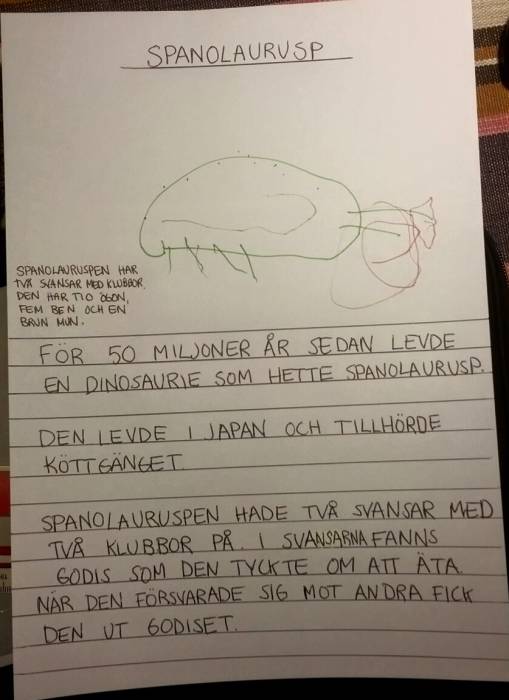 SPANOLAURUSP
SPANOLAURUSPEN HAR
TVÅ SVANSAR MED KLUBBOR.
DEN HAR TIO ÖGON,
FEM BEN OCH EN
BRUN MUN.
FÖR 50 MILJONER ÅR SEDAN LEVDE
EN DINOSAURIE SOM HETTE SPANOLAURUSP.
DEN LEVDE I JAPAN OCH TILLHÖRDE
KÖTTGÄNGET.
SPANOLAURUSPEN HADE TVÅ SVANSAR MED
TVÅ KLUBBOR PÅ. I SVANSARNA FANNS
GODIS SOM DEN TYCKTE OM ATT ÄTA.
NÄR DEN FÖRSVARADE SIG MOT ANDRA FICK
DEN UT GODISET.